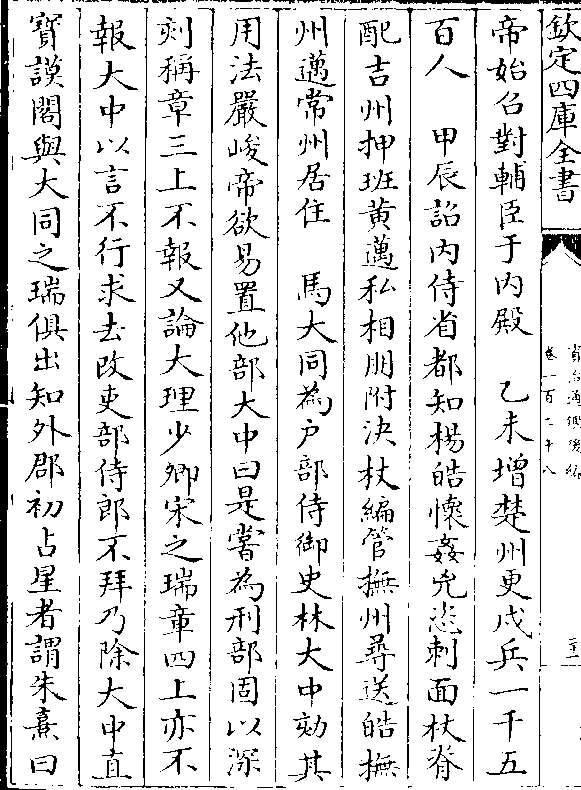 欽定四庫全書
資治通鑑後編
卷一百二十八
二十一
帝始召對輔臣于内殿　乙未増楚州更戍兵一千五
百人　甲辰詔内侍省都知楊皓懷姦兇恣刺面杖脊
配吉州押班黄邁私相朋附決杖編管撫州尋送皓撫
州邁常州居住　馬大同為户部侍御史林大中劾其
用法嚴峻帝欲易置他部大中曰是嘗為刑部固以深
刻稱章三上不報又論大理少卿宋之瑞章四上亦不
報大中以言不行求去改吏部侍郎不拜乃除大中直
寳謨閣與大同之瑞俱出知外郡初占星者謂朱熹曰